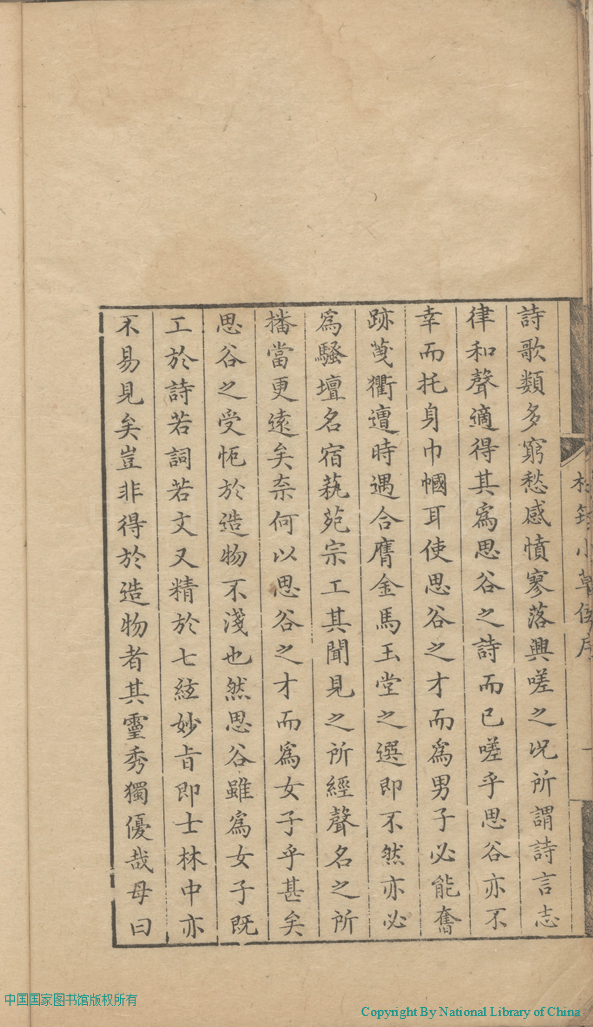 詩歌類多窮愁感憤寥落興嗟之况所謂詩言志
律和聲適得其爲思谷之詩而已嗟乎思谷亦不
幸而托身巾幗耳使思谷之才而爲男子必能奮
跡蔓衢遭時遇合膺金馬玉堂之選即不然亦必
爲騷壇名宿蓺苑宗工其聞見之所經聲名之所
播當更遠矣奈何以思谷之才而爲女子乎甚矣
思谷之受怉於造物不淺也然思谷雖爲女子既
工於詩若詞若文又精於七絃妙旨即士林中亦
不易見矣豈非得於造物者其靈秀獨優哉毋曰
小草
序
一
中国国家图书馆版权所有
Copyright By National Library of China